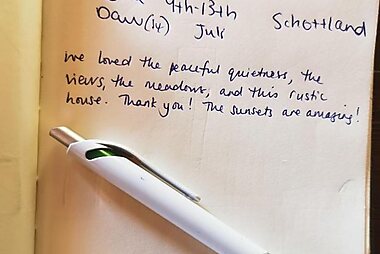 9th-13th
Daw(14) Juli Schottland
We loved the peaceful quietness, the
views, the meadows, and this rustic
house. Thank you! The sunsets are amazing!